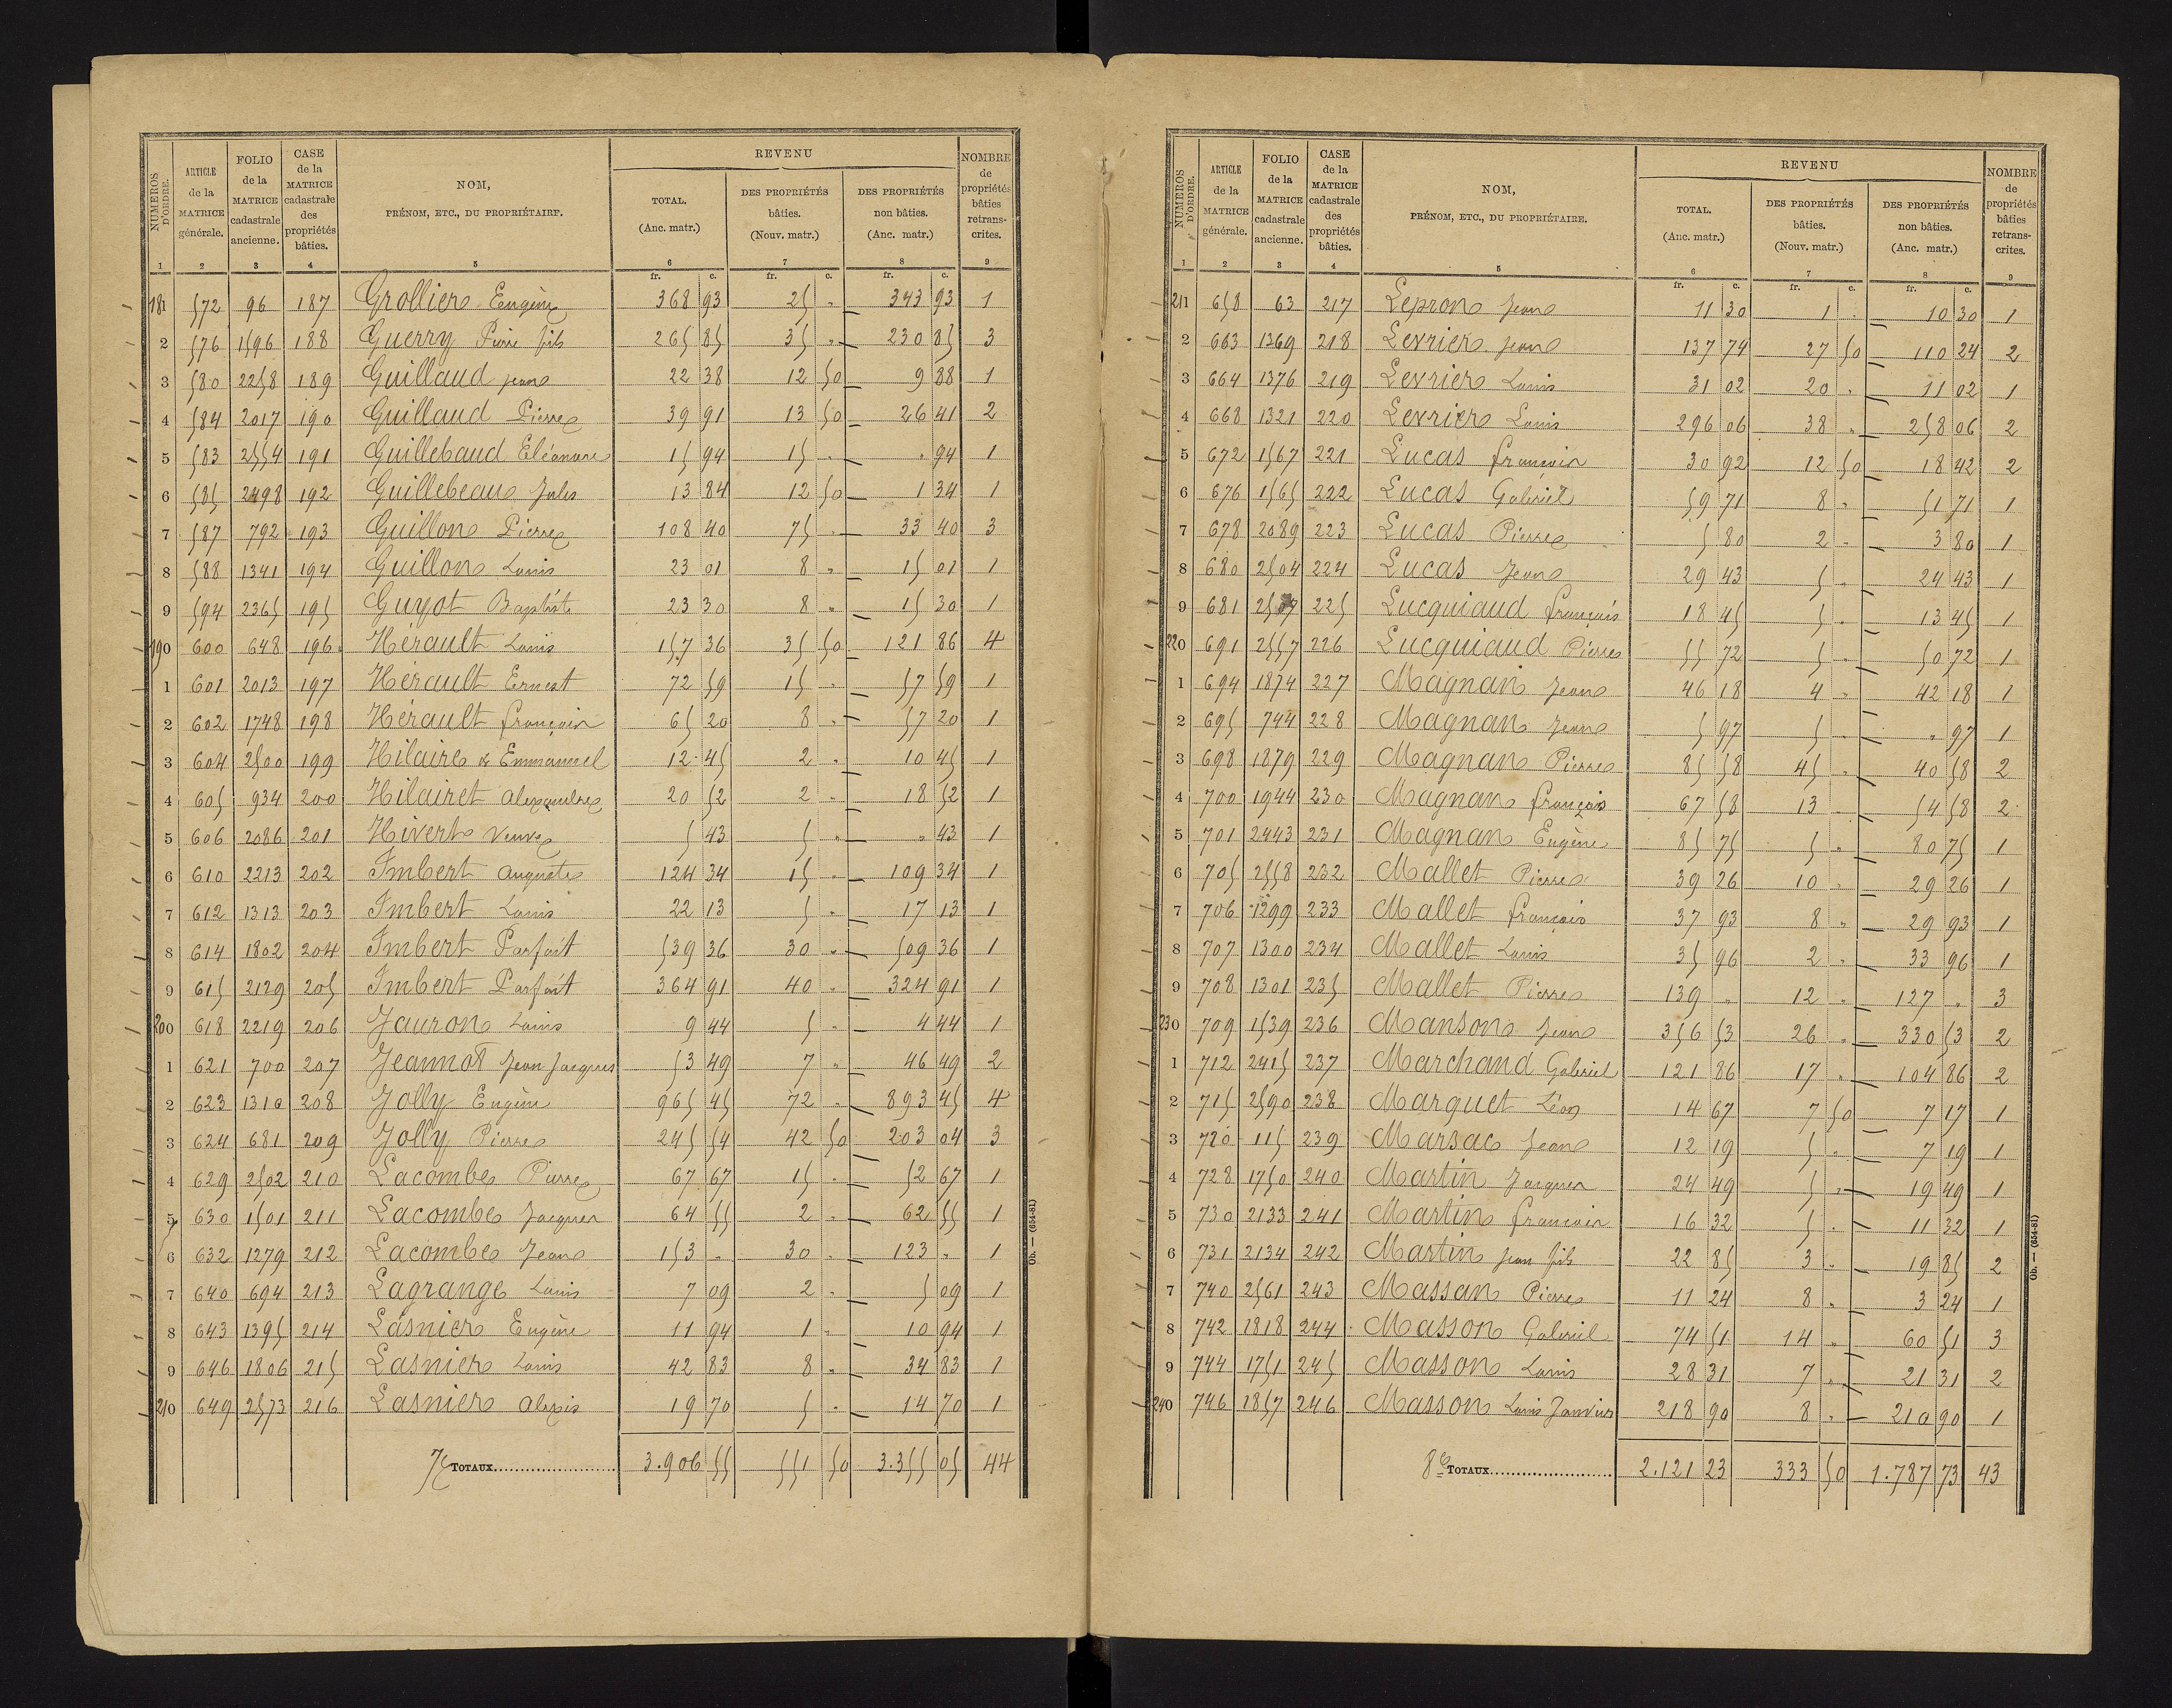 NUMÉROS D'ORDRE. | ARTICLE de la MATRICE générale. | FOLIO de la MATRICE cadastrale ancienne. | CASE de la MATRICE cadastrale des propriétés bâties. | NOM, PRÉNOM, ETC., DU PROPRIÉTAIRE. | REVENU | TOTAL. (Anc. matr.) | DES PROPRIÉTÉS bâties. (Nouv. matr.) | DES PROPRIÉTÉS non bâties. (Anc. matr.) | NOMBRE de propriétés bâties retranscrites.
1 2 3 4 5 6 7 8 9
fr. c. fr. c. fr. c.
181 572 96 187 Grollier Eugène 368 93 25 " 343 93 1
2 576 1596 188 Guerry Pierre fils 265 85 35 " 230 85 3
3 580 2258 189 Guillaud Jean 22 38 12 50 9 88 1
4 584 2017 190 Guillaud Pierre 39 91 13 50 26 41 2
5 583 2554 191 Guillebaud Eléonore 15 94 15 " " 94 1
6 585 2498 192 Guillebeau Jules 13 84 12 50 1 34 1
7 587 792 193 Guillon Pierre 108 40 75 " 33 40 3
8 588 1341 194 Guillon Louis 23 01 8 " 15 01 1
9 594 2365 195 Guyot Baptiste 23 30 8 " 15 30 1
190 600 648 196 Hérault Louis 157 36 35 50 121 86 4
1 601 2013 197 Hérault Ernest 72 59 15 " 57 59 1
2 602 1748 198 Hérault françois 65 20 8 " 57 20 1
3 604 2500 199 Hilaire & Emmanuel 12 45 2 " 10 45 1
4 605 934 200 Hilairet Alexandre 20 52 2 " 18 52 1
5 606 2086 201 Hivert Veuve 5 43 5 " " 43 1
6 610 2213 202 Imbert Auguste 124 34 15 " 109 34 1
7 612 1313 203 Imbert Louis 22 13 5 " 17 13 1
8 614 1802 204 Imbert Parfait 539 36 30 " 509 36 1
9 615 2129 205 Imbert Parfait 364 91 40 " 324 91 1
200 618 2219 206 Jauron Louis 9 44 5 " 4 44 1
1 621 700 207 Jeannot Jean Jacques 53 49 7 " 46 49 2
2 623 1310 208 Jolly Eugène 965 45 72 " 893 45 4
3 624 681 209 Jolly Pierre 245 54 42 50 203 04 3
4 629 2502 210 Lacombe Pierre 67 67 15 " 52 67 1
5 630 1501 211 Lacombe Jacques 64 55 2 " 62 55 1
6 632 1279 212 Lacombe Jean 153 " 30 " 123 " 1
7 640 694 213 Lagrange Louis 7 09 2 " 5 09 1
8 643 1395 214 Lasnier Eugène 11 94 1 " 10 94 1
9 646 1806 215 Lasnier Louis 42 83 8 " 34 83 1
210 649 2573 216 Lasnier Alexis 19 70 5 " 14 70 1
7e TOTAUX 3.906 55 551 50 3.355 05 44
Ob. — (654-81)
NUMÉROS D'ORDRE. | ARTICLE de la MATRICE générale. | FOLIO de la MATRICE cadastrale ancienne. | CASE de la MATRICE cadastrale des propriétés bâties. | NOM, PRÉNOM, ETC., DU PROPRIÉTAIRE. | REVENU | TOTAL. (Anc. matr.) | DES PROPRIÉTÉS bâties. (Nouv. matr.) | DES PROPRIÉTÉS non bâties. (Anc. matr.) | NOMBRE de propriétés bâties retranscrites.
1 2 3 4 5 6 7 8 9
fr. c. fr. c. fr. c.
211 658 63 217 Lepron Jean 11 30 1 " 10 30 1
2 663 1369 218 Levrier Jean 137 74 27 50 110 24 2
3 664 1376 219 Levrier Louis 31 02 20 " 11 02 1
4 668 1321 220 Levrier Louis 296 06 38 " 258 06 2
5 672 1567 221 Lucas françois 30 92 12 50 18 42 2
6 676 1565 222 Lucas Gabriel 59 71 8 " 51 71 1
7 678 2089 223 Lucas Pierre 5 80 2 " 3 80 1
8 680 2504 224 Lucas Jean 29 43 5 " 24 43 1
9 681 225 Lucquiaud françois 18 45 5 " 13 45 1
220 691 2557 226 Lucquiaud Pierre 55 72 5 " 50 72 1
1 694 1874 227 Magnan Jean 46 18 4 " 42 18 1
2 695 744 228 Magnan Jean 5 97 5 " " 97 1
3 698 1879 229 Magnan Pierre 85 58 45 " 40 58 2
4 700 1944 230 Magnan françois 67 58 13 " 54 58 2
5 701 2443 231 Magnan Eugène 85 75 5 " 80 75 1
6 705 2558 232 Mallet Pierre 39 26 10 " 29 26 1
7 706 1299 233 Mallet françois 37 93 8 " 29 93 1
8 707 1300 234 Mallet Louis 35 96 2 " 33 96 1
9 708 1301 235 Mallet Pierre 139 " 12 " 127 " 3
230 709 1539 236 Manson Jean 356 53 26 " 330 53 2
1 712 2415 237 Marchand Gabriel 121 86 17 " 104 86 2
2 715 2590 238 Marquet Léon 14 67 7 50 7 17 1
3 720 115 239 Marsac Jean 12 19 5 " 7 19 1
4 728 1750 240 Martin Jacques 24 49 5 " 19 49 1
5 730 2133 241 Martin françois 16 32 5 " 11 32 1
6 731 2134 242 Martin Jean fils 22 85 3 " 19 85 2
7 740 2561 243 Massan Pierre 11 24 8 " 3 24 1
8 742 1818 244 Masson Gabriel 74 51 14 " 60 51 3
9 744 1751 245 Masson Louis 28 31 7 " 21 31 2
240 746 1857 246 Masson Louis Janvier 218 90 8 " 210 90 1
8e TOTAUX 2.121 23 333 50 1.787 73 43
Ob. — (654-81)